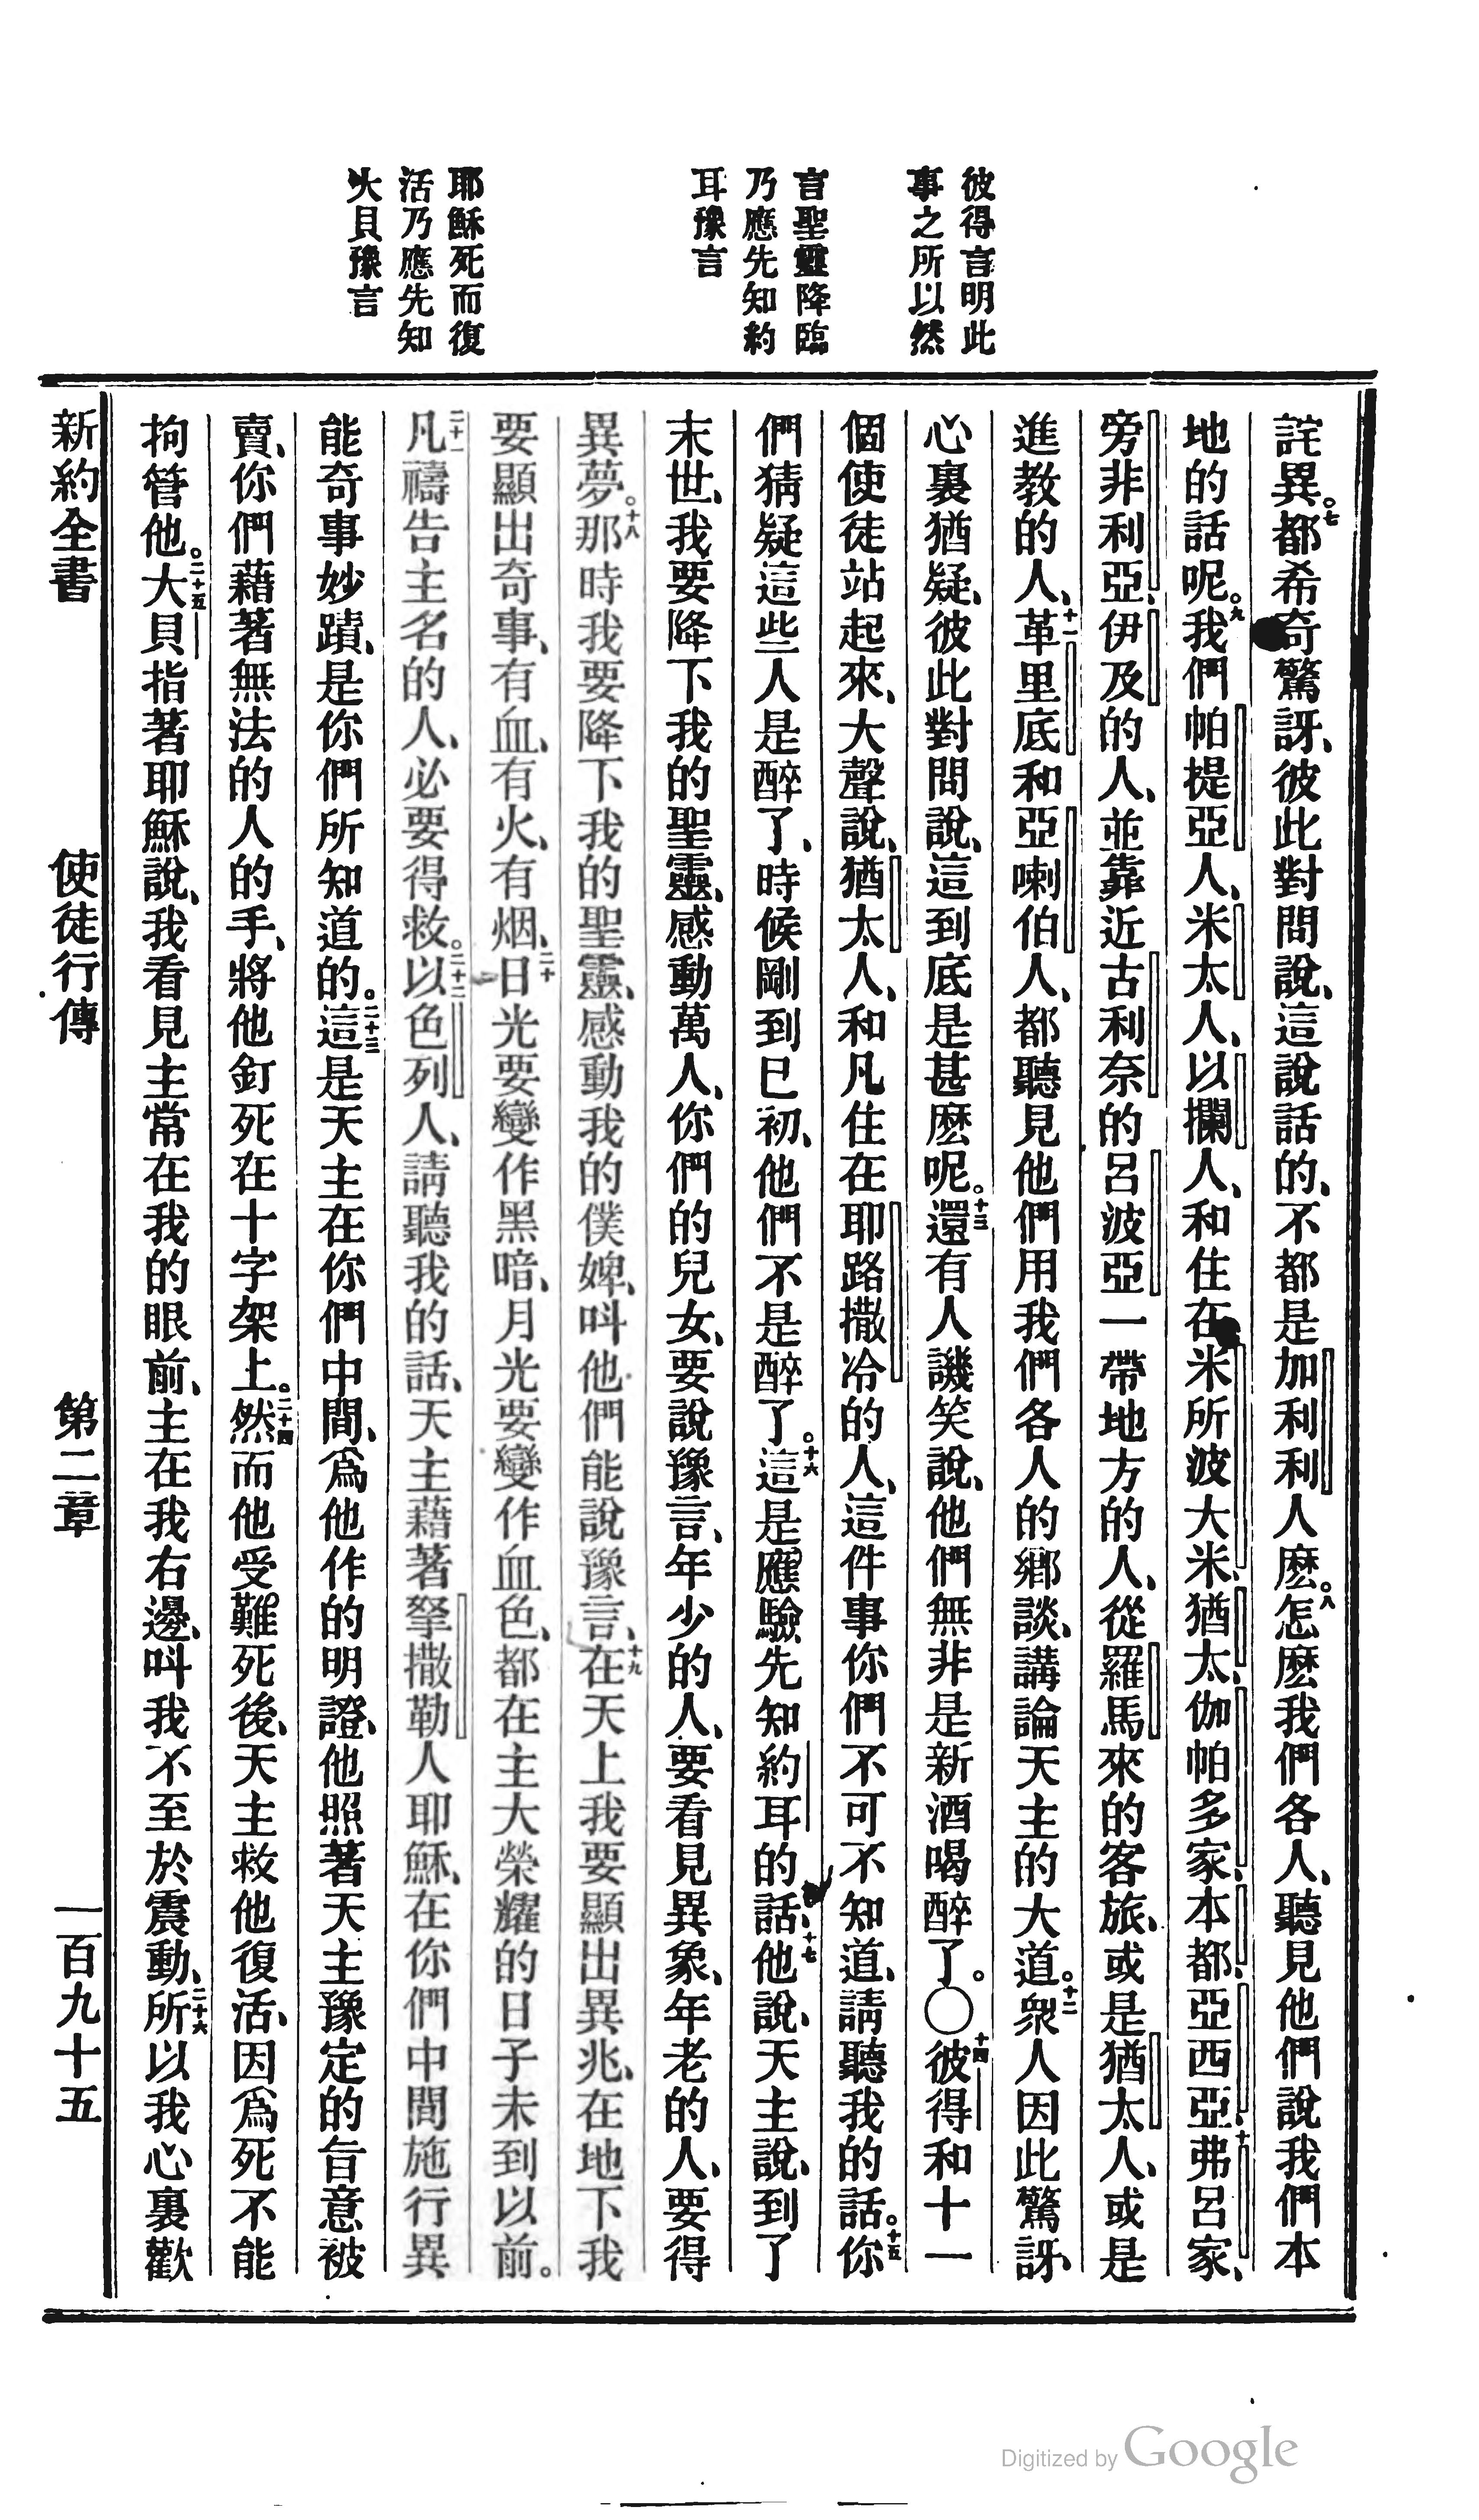 彼得言明此
事之所以然
言聖靈降臨
乃應先知約
耳豫言
耶穌死而復
活乃應先知
大貝豫言
詫異。七都希奇驚訝、彼此對問說、這說話的、不都是加利利人麽。八怎麽我們各人、聽見他們說我們本
地的話呢。九我們帕提亞人、米太人、以攔人、和住在米所波大米、猶太、伽帕多家、本都、亞西亞、十弗呂家、
旁非利亞、伊及的人、並靠近古利奈的呂波亞一帶地方的人、從羅馬來的客旅、或是猶太人、或是
進教的人、十一革里底和亞喇伯人、都聽見他們用我們各人的鄉談、講論天主的大道。十二衆人因此驚訝、
心裏猶疑、彼此對問說、這到底是甚麽呢。十三還有人譏笑說、他們無非是新酒喝醉了。○十四彼得和十一
個使徒站起來、大聲說、猶太人、和凡住在耶路撒冷的人、這件事你們不可不知道、請聽我的話。十五你
們猜疑這些人是醉了、時候剛到巳初、他們不是醉了。十六這是應驗先知約耳的話、十七他說、天主說、到了
末世、我要降下我的聖靈、感動萬人、你們的兒女、要說豫言、年少的人、要看見異象、年老的人、要得
異夢。十八那時我要降下我的聖靈、感動我的僕婢、呌他們能說豫言、十九在天上我要顯出異兆、在地下我
要顯出奇事、有血、有火、有烟、二十日光要變作黑暗、月光要變作血色、都在主大榮耀的日子未到以前。
二十一凡禱告主名的人、必要得救。二十二以色列人、請聽我的話、天主藉著拏撒勒人耶穌、在你們中間施行異
能奇事妙蹟、是你們所知道的。二十三這是天主在你們中間、爲他作的明證、他照著天主豫定的旨意被
賣、你們藉著無法的人的手、將他釘死在十字架上。二十四然而他受難死後、天主救他復活、因爲死不能
拘管他。二十五大貝指著耶穌說、我看見主常在我的眼前、主在我右邊、呌我不至於震動、二十六所以我心裏歡
新約全書 使徒行傳 第二章 一百九十五
Digitized by Google